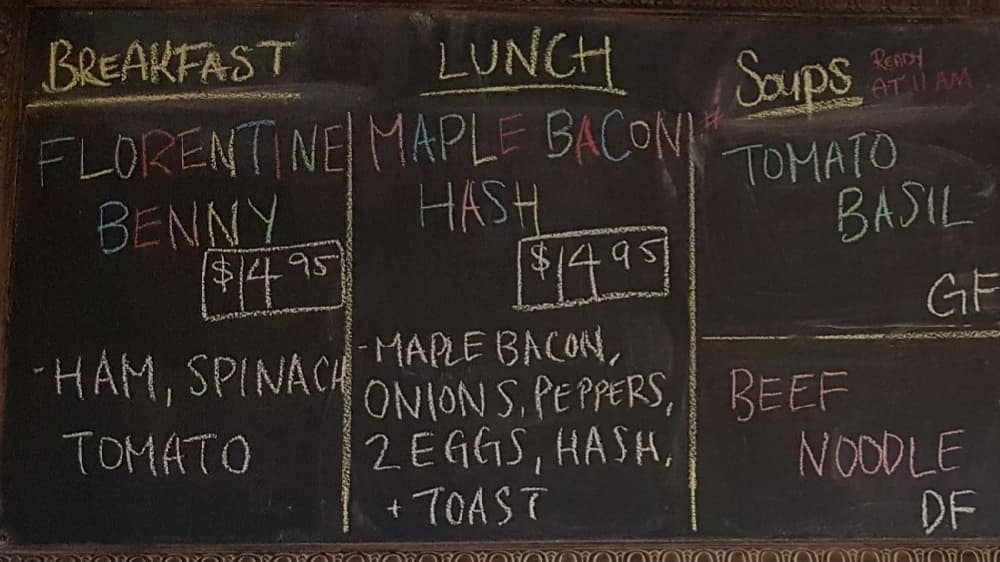 BREAKFAST
FLORENTINE
BENNY
$14.95
-HAM, SPINACH
TOMATO
LUNCH
MAPLE BACON
HASH
$14.95
-MAPLE BACON,
ONIONS, PEPPERS,
2 EGGS, HASH,
+ TOAST
SOUPS
READY
AT 11 AM
TOMATO
BASIL
GF
BEEF
NOODLE
DF